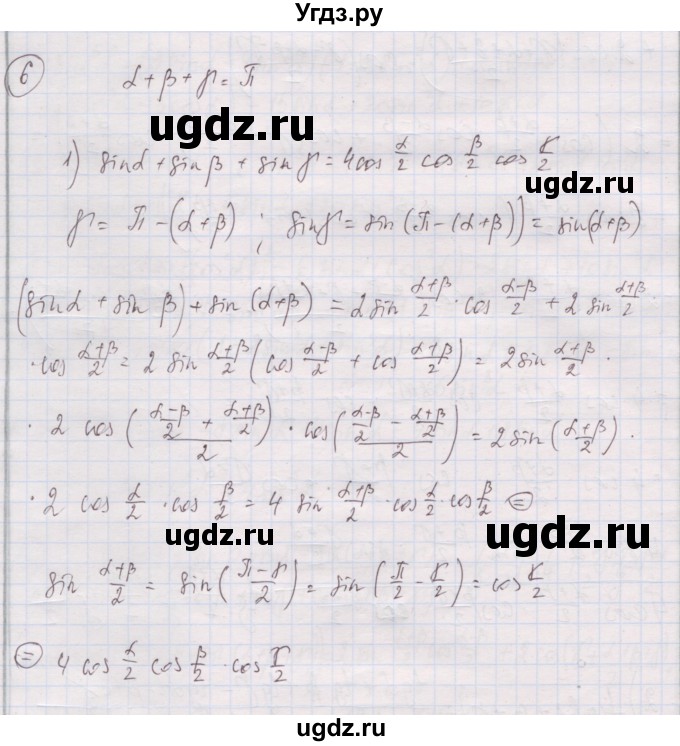 Угдз.ру
6
α + β + γ = π
ugdz.ru
1) sinα + sinβ + sinγ = 4cos α/2 cos β/2 cos γ/2
ugdz.ru
γ = π - (α+β) ; sinγ = sin(π-(α+β)) = sin(α+β)
(sinα + sin β) + sin(α+β) = 2 sin (α+β)/2 · cos (α-β)/2 + 2 sin (α+β)/2 ·
ugdz.ru
· cos (α+β)/2 = 2 sin (α+β)/2 (cos (α-β)/2 + cos (α+β)/2) = 2 sin (α+β)/2 ·
· 2 cos(((α-β)/2 + (α+β)/2)/2) · cos(((α-β)/2 - (α+β)/2)/2) = 2 sin((α+β)/2) ·
· 2 cos α/2 · cos β/2 = 4 sin (α+β)/2 · cos α/2 · cos β/2 =
ugdz.ru
ugdz.ru
sin (α+β)/2 = sin((π-γ)/2) = sin(π/2 - γ/2) = cos γ/2
= 4 cos α/2 cos β/2 · cos γ/2
ugdz.ru
ugdz.ru